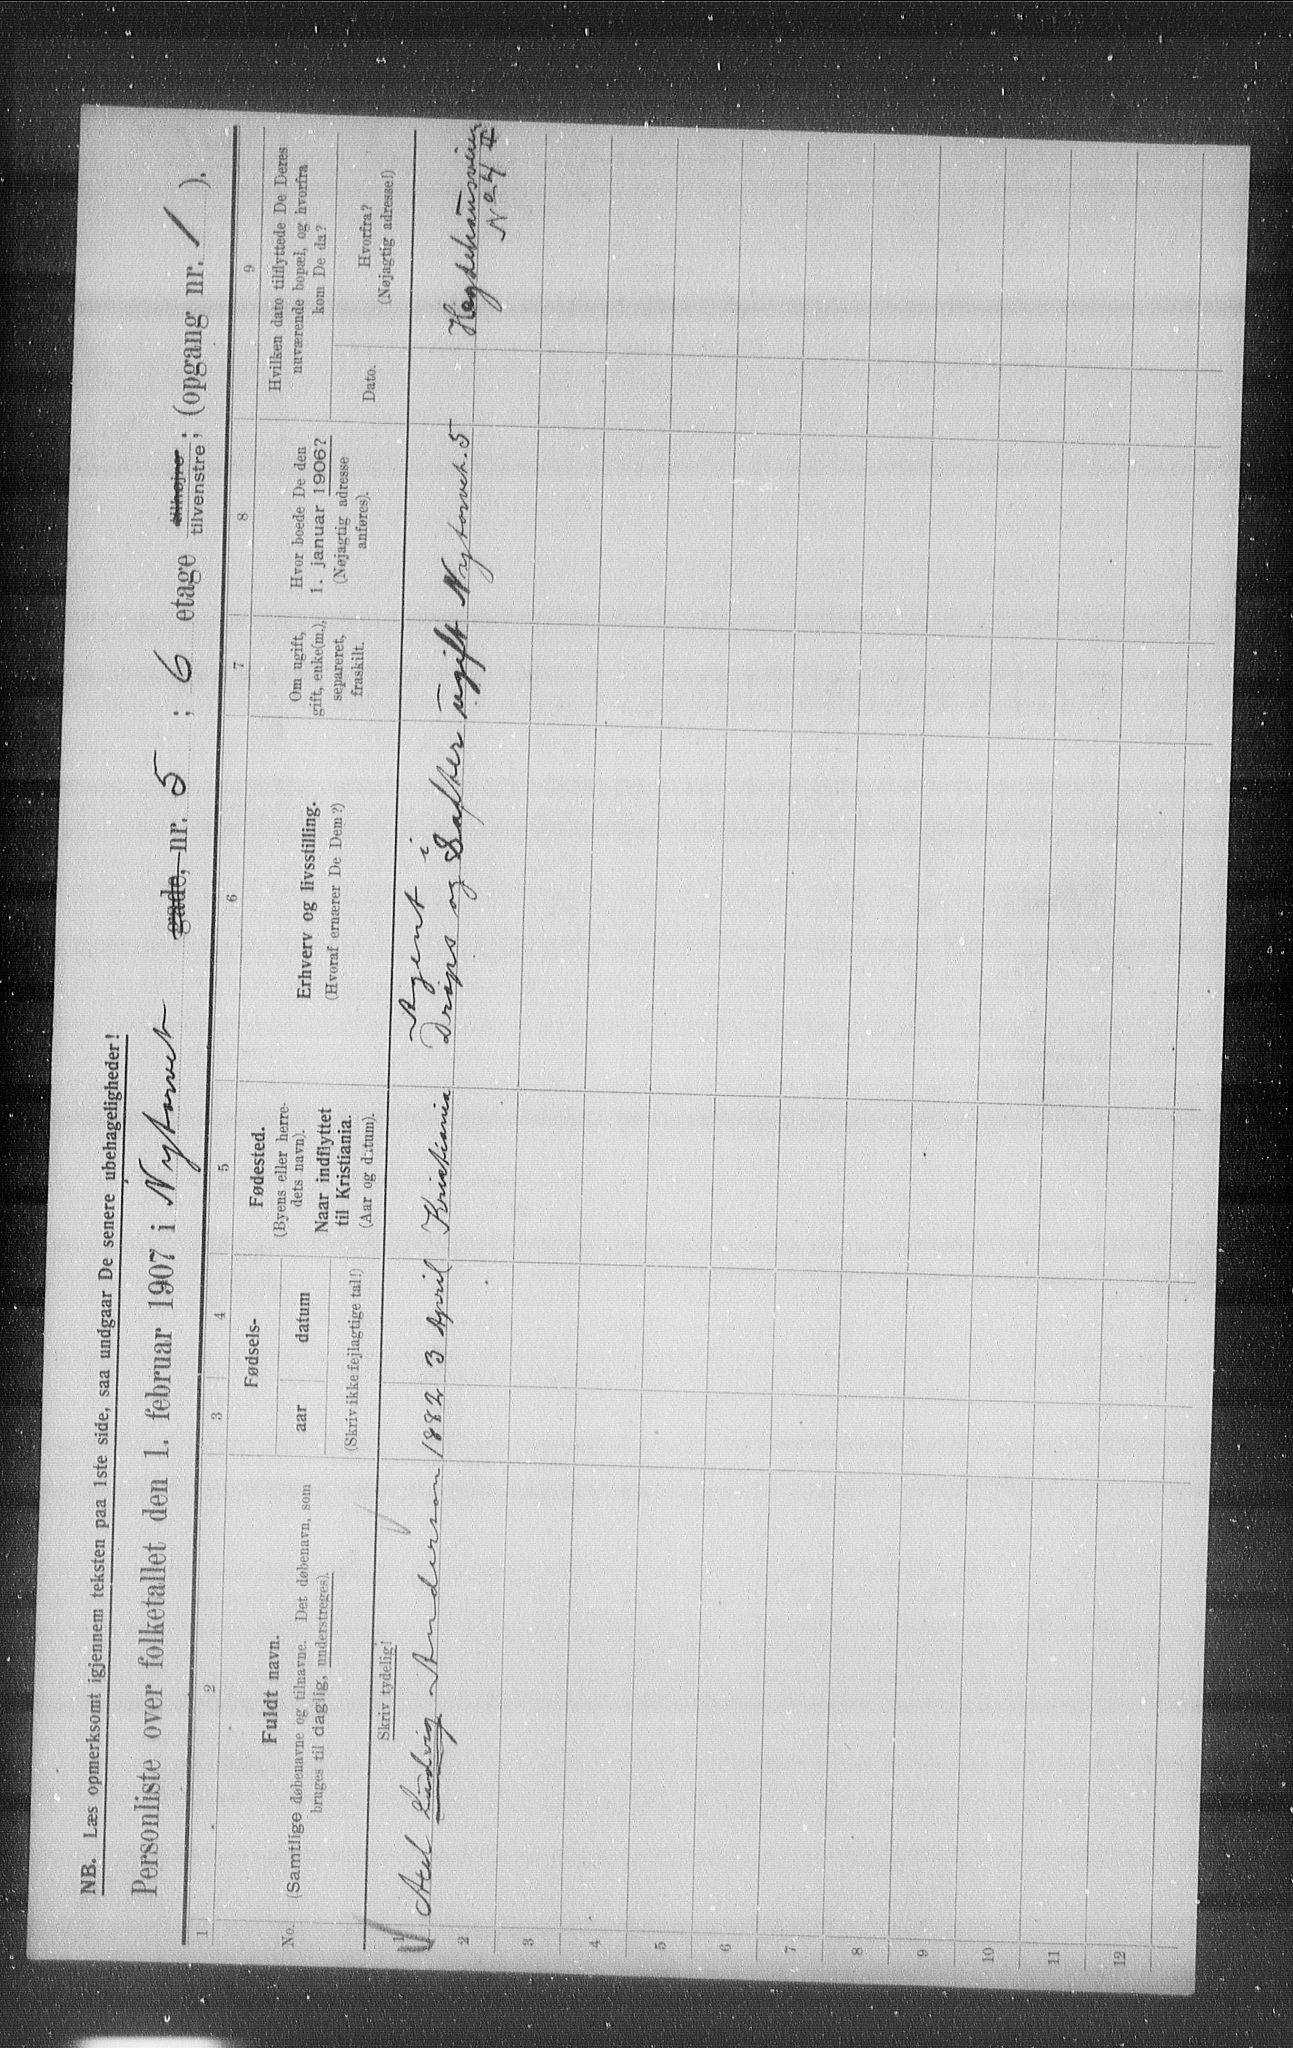 NB. Læs opmerksomt igjennem teksten paa 1ste side, saa undgaar De senere ubehageligheder!
Personliste over folketallet den 1. februar 1907 i Nytorvet gade, nr. 5 ; 6 etage tilhøjre; tilvenstre; (opgang nr. 1 ).
1 2 3 4 5 6 7 8 9
No.
Fuldt navn.
(Samtlige døbenavne og tilnavne. Det døbenavn, som
bruges til daglig, understreges).
Skriv tydelig!
Fødsels-
aar datum
(Skriv ikke fejlagtige tal!)
Fødested.
(Byens eller herre-
dets navn).
Naar indflyttet
til Kristiania.
(Aar og datum).
Erhverv og livsstilling.
(Hvoraf ernærer De Dem?)
Om ugift,
gift, enke(m.),
separeret,
fraskilt.
Hvor boede De den
1. januar 1906?
(Nøjagtig adresse
anføres).
Hvilken dato tilflyttede De Deres
nuværende bopæl, og hvorfra
kom De da?
Dato.
Hvorfra?
(Nøjagtig adresse!)
1 Axel Ludvig Anderson 1882 3 April Kristiania Agent i
Drops og Safter ugift Nytorvet. 5 Hegdehaugsveien
No 4 II
2
3
4
5
6
7
8
9
10
11
12